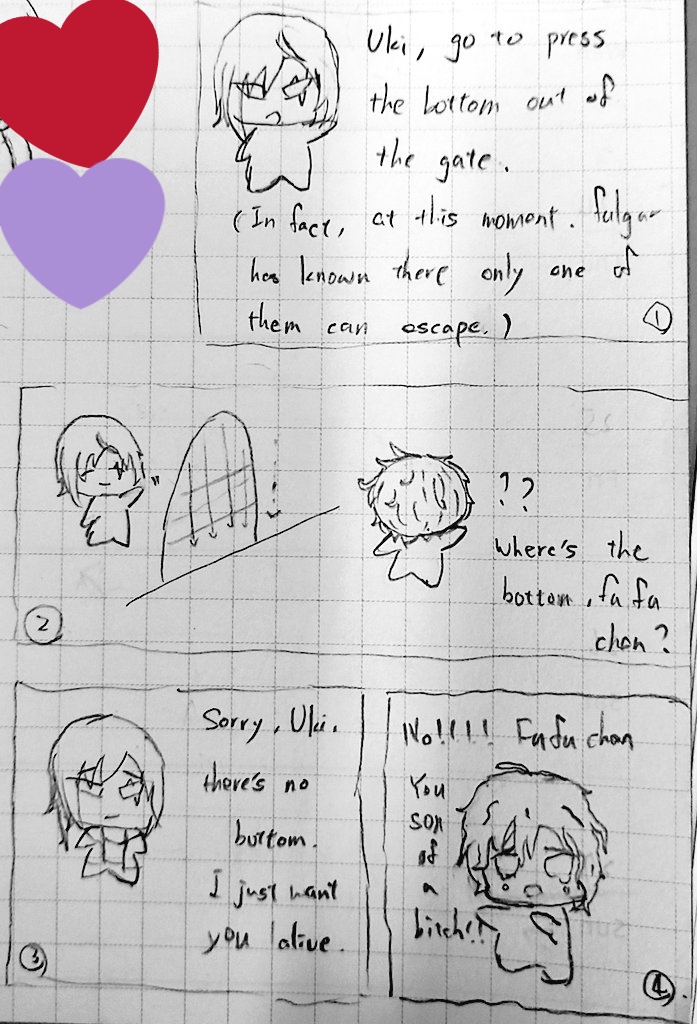 Uki, go to press
the bottom out of
the gate.
(In fact, at this moment. fulgar
has known there only one of
them can escape.)
1
??
Where's the
bottom, fafa
chan?
2
Sorry, Uki,
there's no
bottom.
I just want
you alive.
3
No!!!! Fufu chan
You
son
of
a
bitch!!
4